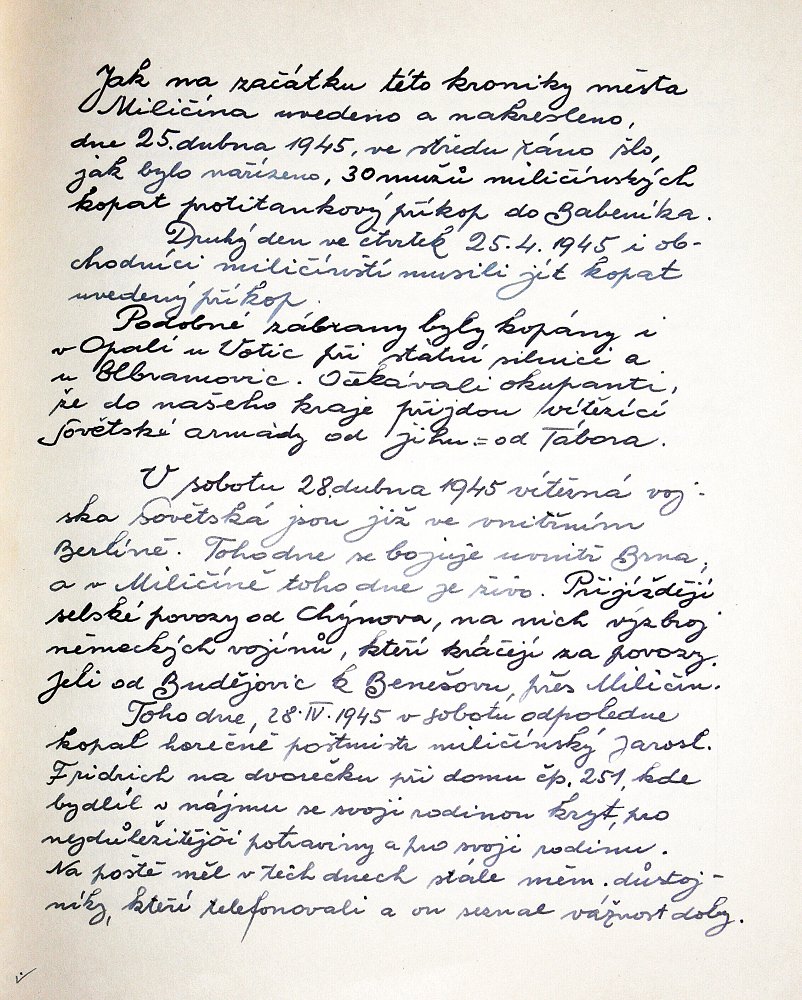 Jak na začátku této kroniky města
Miličína uvedeno a nakresleno,
dne 25. dubna 1945, ve středu ráno šlo,
jak bylo nařízeno, 30 mužů miličínských
kopat protitankový příkop do Babeníka.
Druhý den ve čtvrtek 25.4. 1945 i ob-
chodníci miličínští musili jít kopat
uvedený příkop.
Podobné zábrany byly kopány i
v Opalí u Votic při státní silnici a
u Olbramovic. Očekávali okupanti,
že do našeho kraje přijdou vítězící
Sovětské armády od jihu = od Tábora.
V sobotu 28. dubna 1945 vítězná voj-
ska Sovětská jsou již ve vnitřním
Berlíně. Toho dne se bojuje uvnitř Brna,
a v Miličíně toho dne je živo. Přijíždějí
selské povozy od Chýnova, na nich výzbroj
německých vojínů, kteří kráčejí za povozy.
Jeli od Budějovic k Benešovu, přes Miličín.
Toho dne, 28.IV.1945 v sobotu odpoledne
kopal horečně poštmistr miličínský Jarosl.
Fridrich na dvorečku při domu čp. 251, kde
bydlil v nájmu se svojí rodinou kryt, pro
nejdůležitější potraviny a pro svoji rodinu.
Na poště měl v těch dnech stále něm. důstoj-
níky, kteří telefonovali a on seznal vážnost doby.